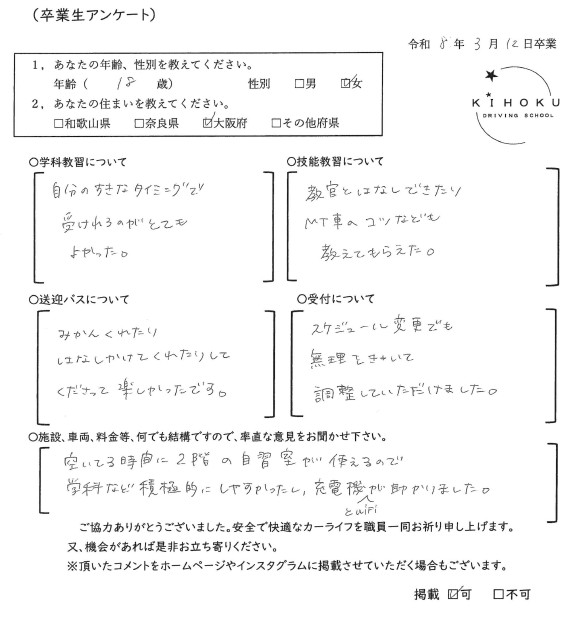 （卒業生アンケート）
令和 8 年 3 月 12 日卒業
1，あなたの年齢、性別を教えてください。
年齢（ 18 歳） 性別 □男 ☑女
2，あなたの住まいを教えてください。
□和歌山県 □奈良県 ☑大阪府 □その他府県
KIHOKU
DRIVING SCHOOL
○学科教習について
自分のすきなタイミングで
受けれるのがとても
よかった。
○技能教習について
教官とはなしできたり
MT車のコツなども
教えてもらえた。
○送迎バスについて
みかんくれたり
はなしかけてくれたりして
くださって楽しかったです。
○受付について
スケジュール変更でも
無理をきいて
調整していただけました。
○施設、車両、料金等、何でも結構ですので、率直な意見をお聞かせ下さい。
空いてる時間に2階の自習室が使えるので
学科など積極的にしやすかったし、充電機が助かりました。
とWiFi
ご協力ありがとうございました。安全で快適なカーライフを職員一同お祈り申し上げます。
又、機会があれば是非お立ち寄りください。
※頂いたコメントをホームページやインスタグラムに掲載させていただく場合もございます。
掲載 ☑可 □不可